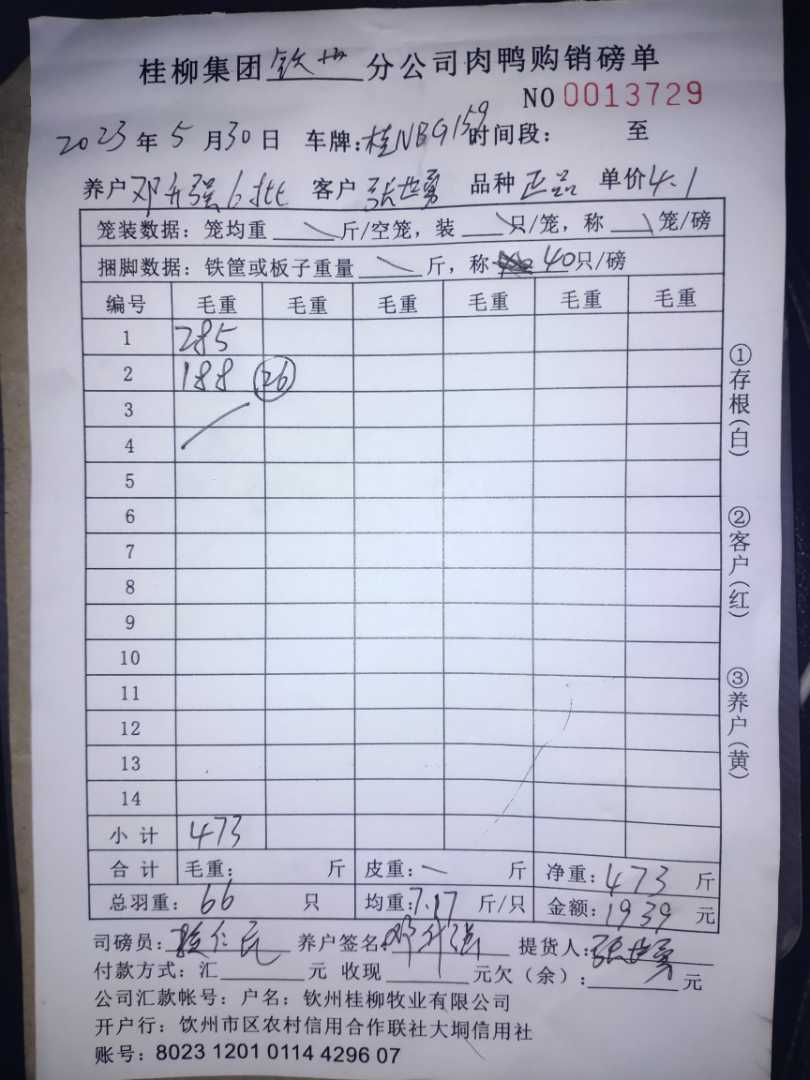 桂柳集团钦州分公司肉鸭购销磅单
NO 0013729
2023年5月30日 车牌:桂NBG159时间段: 至
养户邓升强6批 客户张世勇 品种正品 单价4.1
笼装数据: 笼均重 \ 斤/空笼, 装 \ 只/笼, 称 \ 笼/磅
捆脚数据: 铁筐或板子重量 \ 斤, 称 40只/磅
编号 毛重 毛重 毛重 毛重 毛重 毛重
1 285
2 188 26
3
4
5
6
7
8
9
10
11
12
13
14
小计 473
合计 毛重: 斤 皮重: — 斤 净重: 473 斤
总羽重: 66 只 均重:7.17 斤/只 金额: 1939 元
司磅员: 养户签名:邓升强 提货人:张世勇
付款方式: 汇 元 收现 元欠(余): 元
公司汇款帐号: 户名: 钦州桂柳牧业有限公司
开户行: 饮州市区农村信用合作联社大垌信用社
账号: 8023 1201 0114 4296 07
①存根(白)
②客户(红)
③养户(黄)